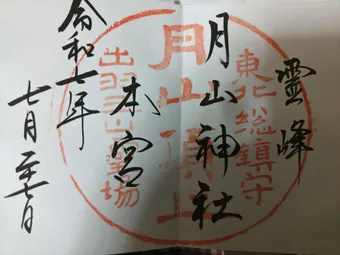 靈峰
月山神社
本宮
令和七年
七月二十七日
東北総鎮守
月山頂上
出羽三山霊場